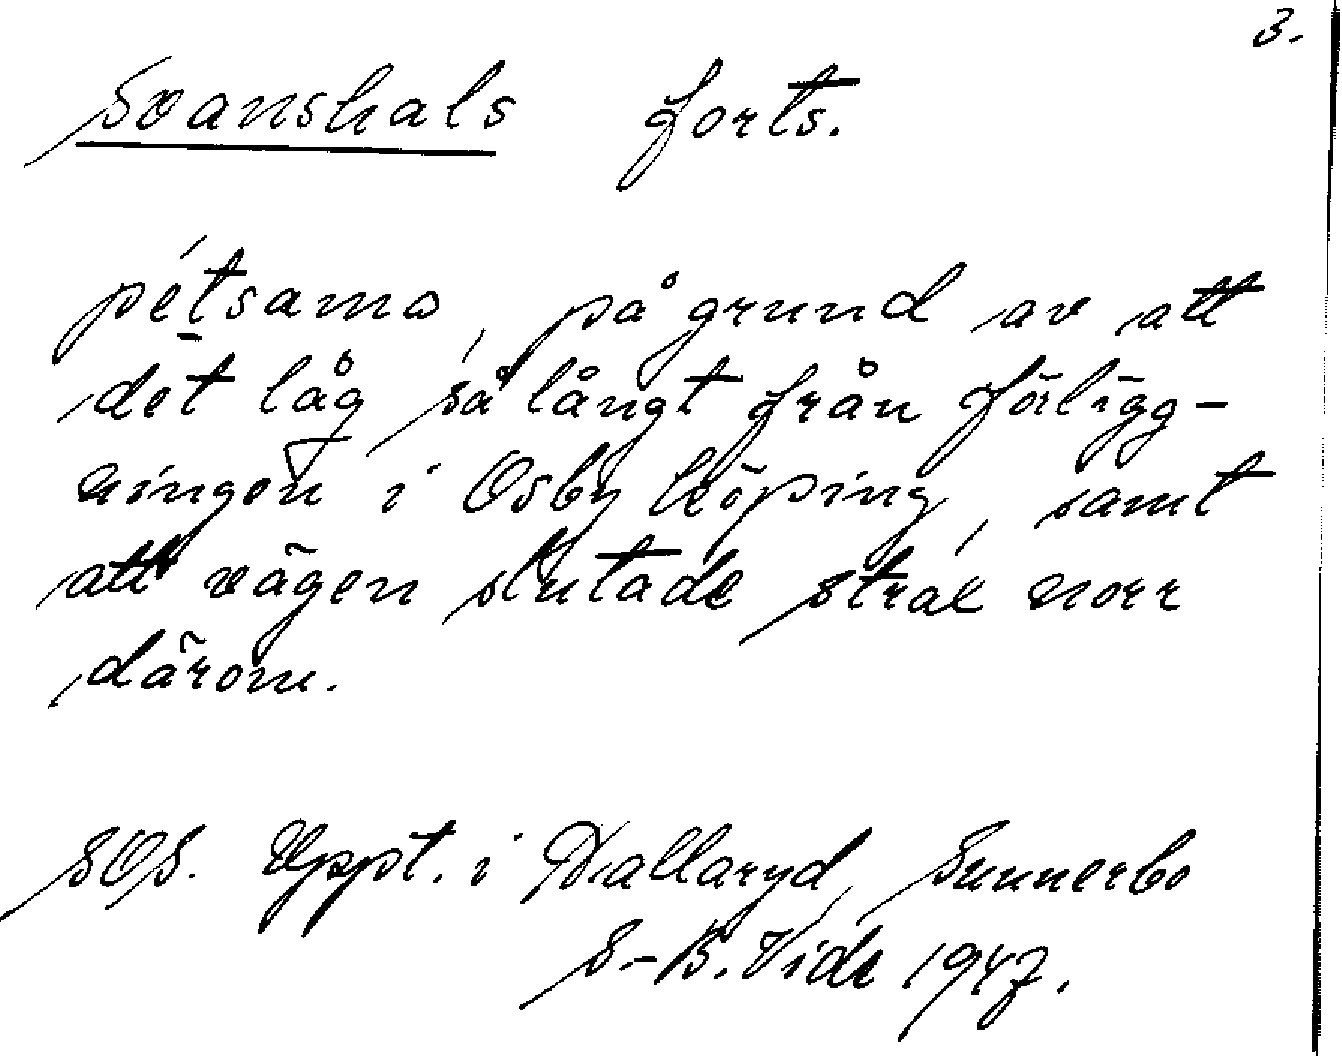 3.
Svanshals forts.
pétsamo, på grund av att
det låg så långt från förlägg-
ningen i Osby köping, samt
att vägen slutade strax norr
därom.
SOS. Uppt. i Hallaryd, Sunnerbo
S-B. Vide 1947.